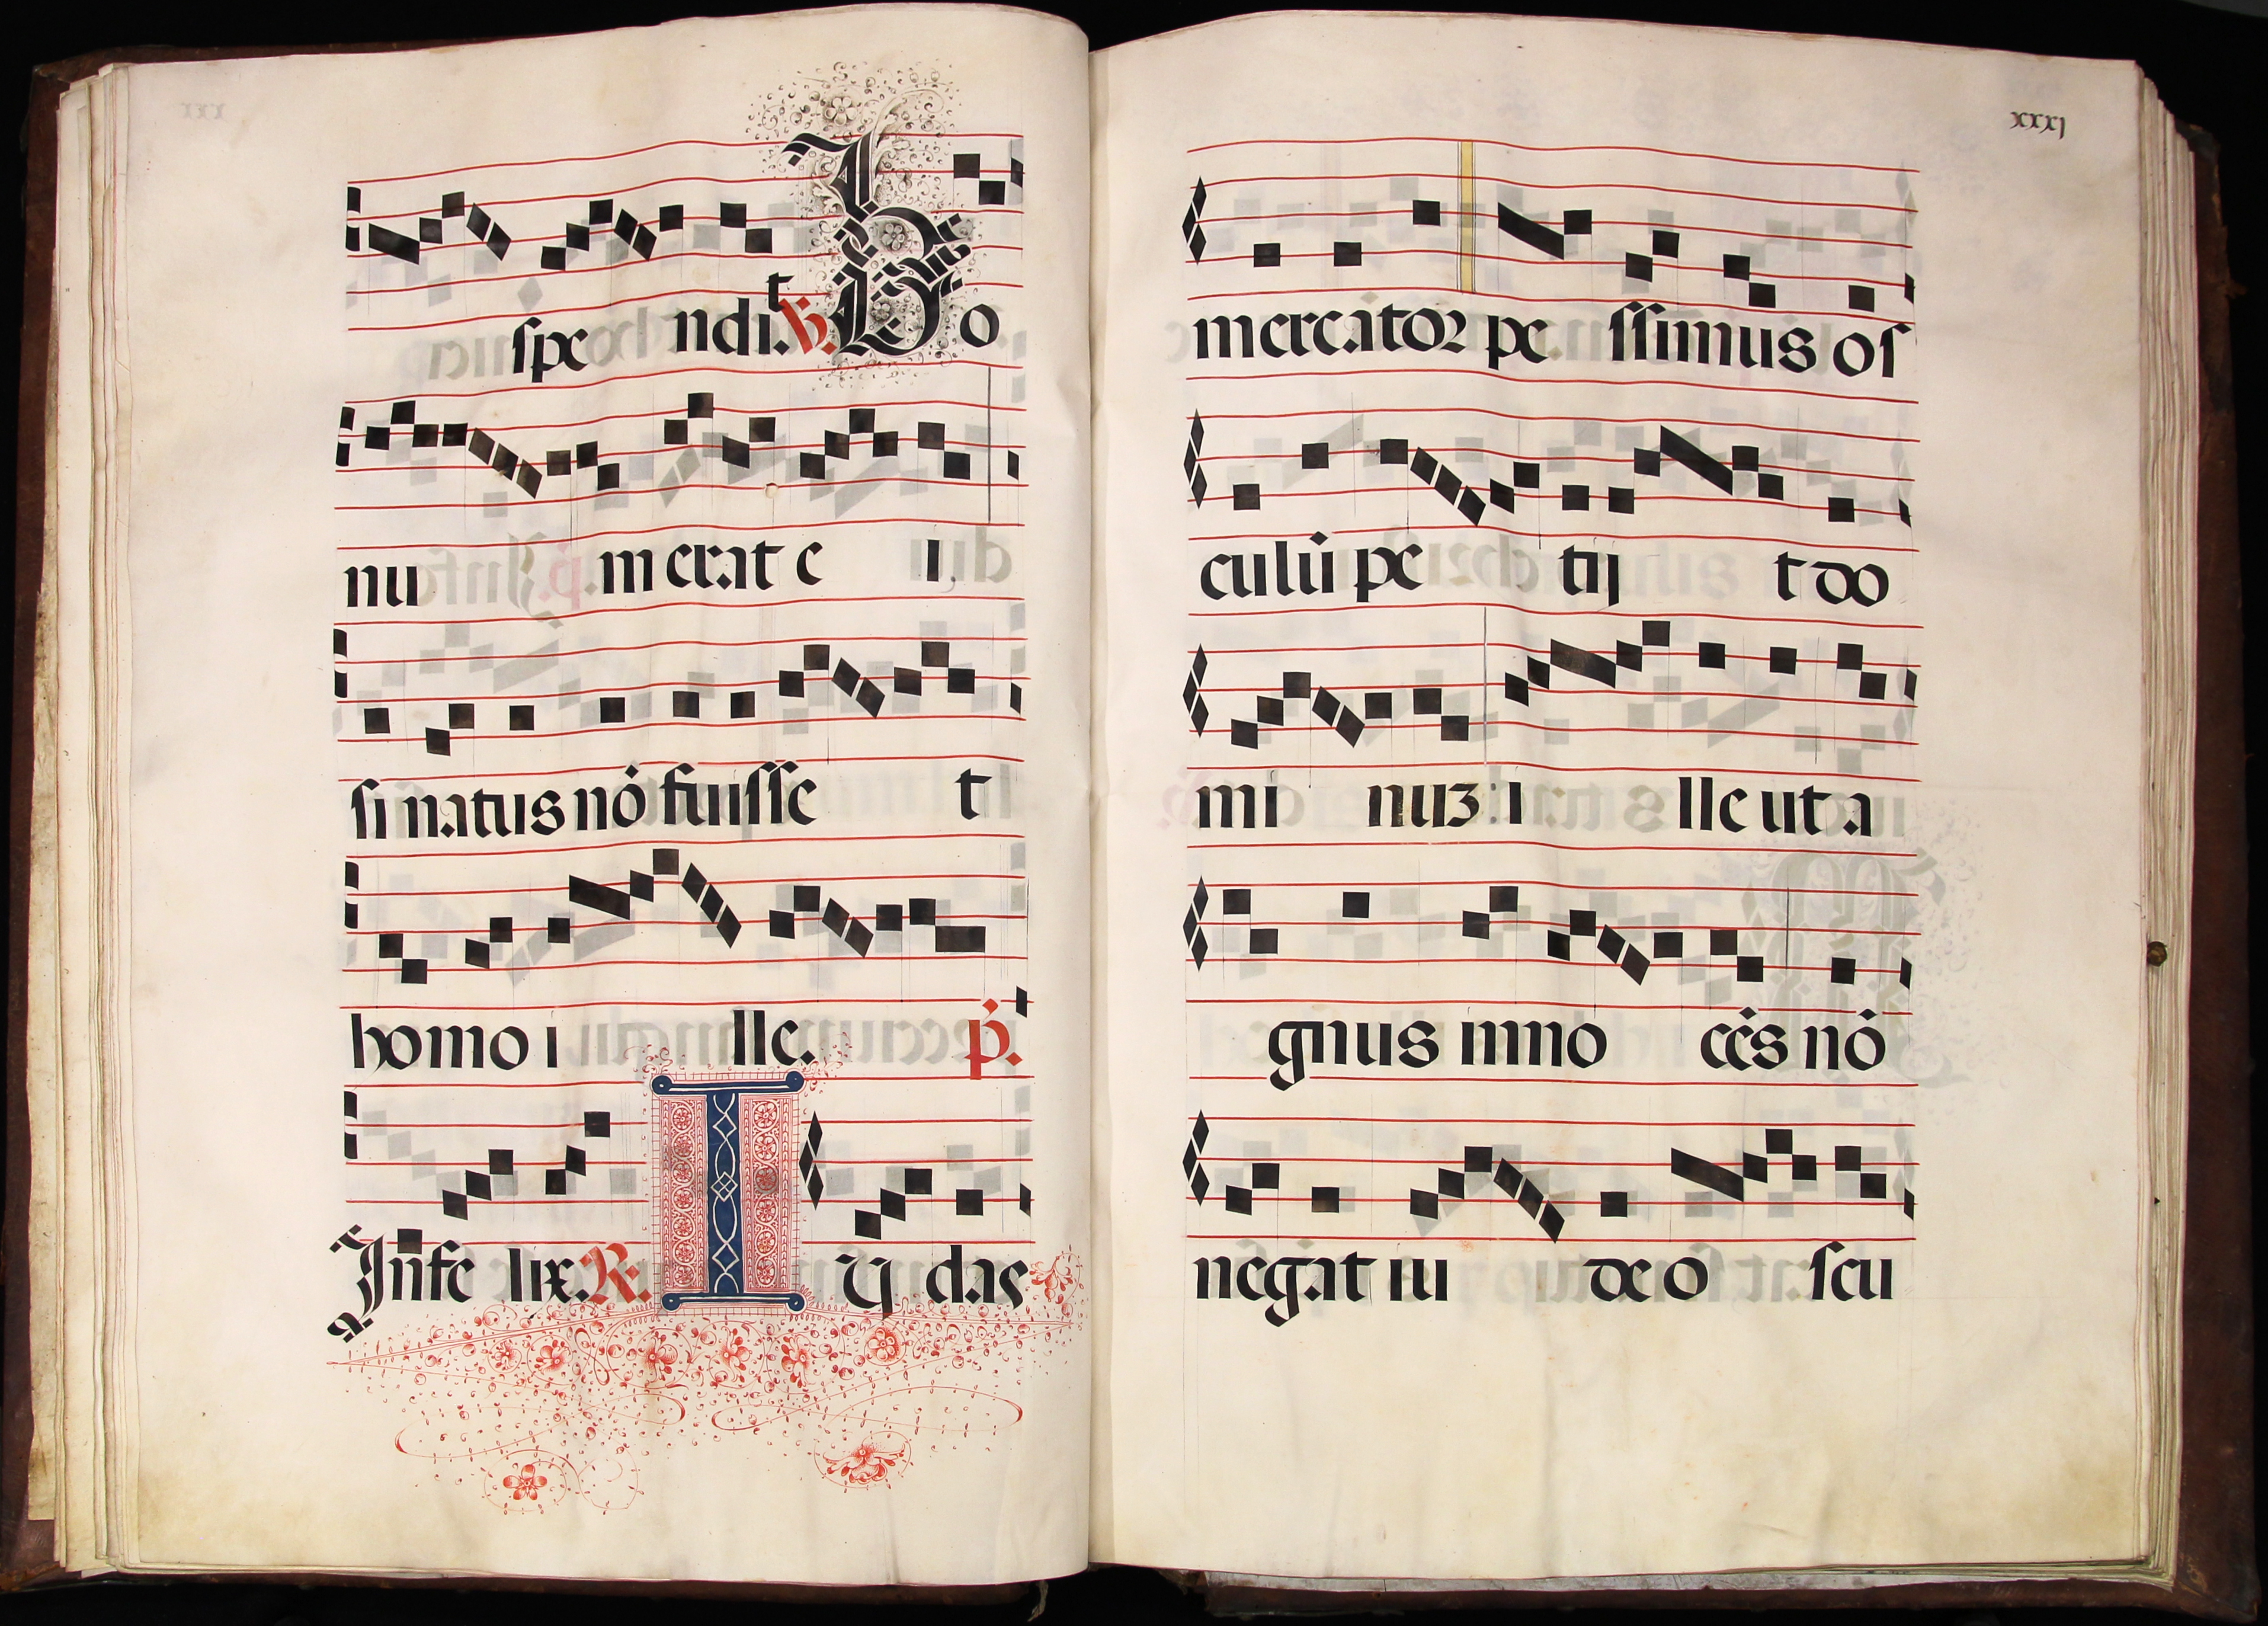 spe ndit. V. Bo
nu merat e i
si natus nō fuisse t
homo i lle. p̄.
Infe lix. R. I u das
xxxj
mercator pe ssimus os
culū pe tij t do
mi nuz : i lle ut a
gnus inno cēs nō
negat iu de o scu